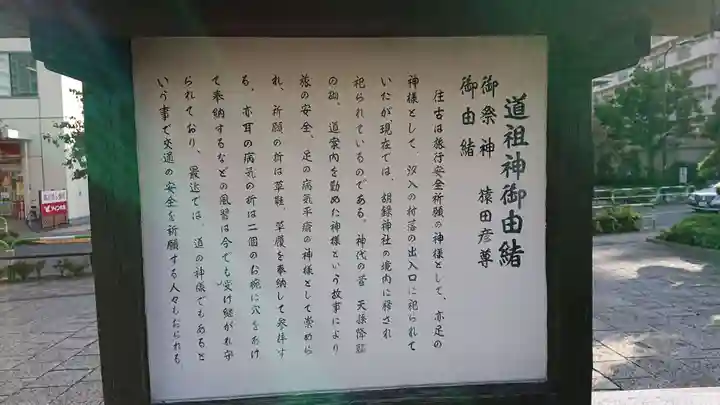 道祖神御由緒
御祭神　猿田彦尊
御由緒
往古は旅行安全祈願の神様として、亦足の
神様として、汐入の村落の出入口に祀られて
いたが現在では、胡録神社の境内に移され
祀られているのである。神代の昔　天孫降臨
の砌、道案内を勤めた神様という故事により
旅の安全、足の病気平癒の神様として崇めら
れ、祈願の折は草鞋、草履を奉納して参拝す
る。亦耳の病気の折は二個のお椀に穴をあけ
て奉納するなどの風習は今でも受け継がれ守
られており、最近では、道の神様でもあると
いう事で交通の安全を祈願する人々もおられる